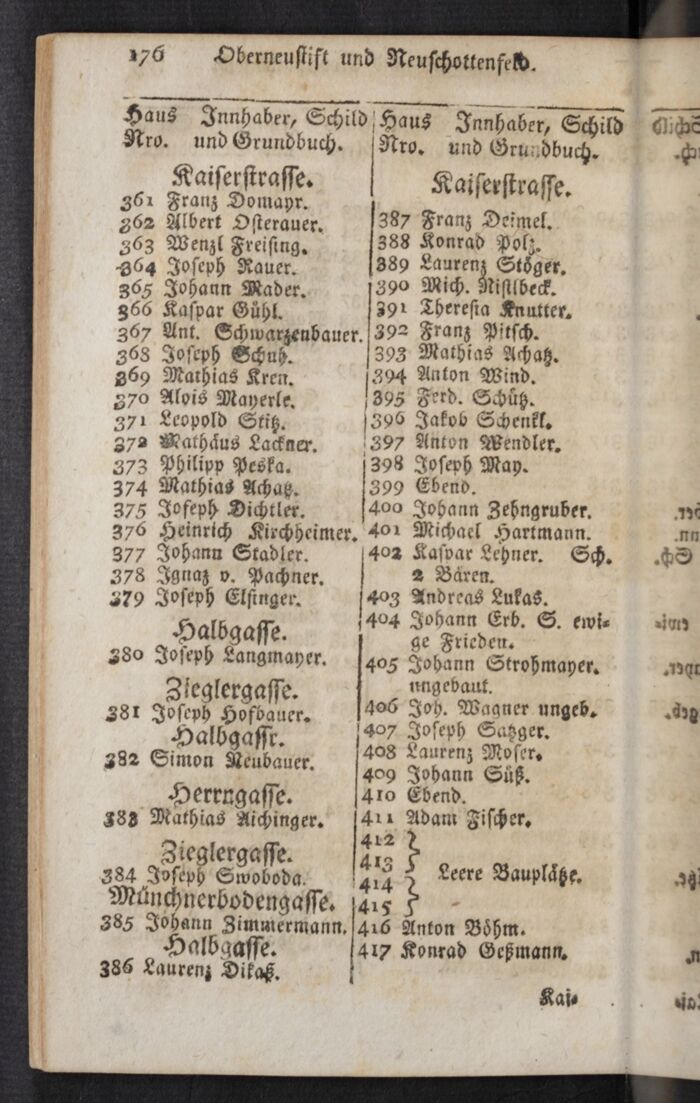 176 Oberneustift und Neuschottenfeld.
Haus Innhaber, Schild
Nro. und Grundbuch.
Kaiserstrasse.
361 Franz Domayr.
362 Albert Osterauer.
363 Wenzl Freising.
364 Joseph Rauer.
365 Johann Mader.
366 Kaspar Gühl.
367 Ant. Schwarzenbauer.
368 Joseph Schuh.
369 Mathias Kren.
370 Alois Mayerle.
371 Leopold Stitz.
372 Mathäus Lackner.
373 Philipp Peska.
374 Mathias Achatz.
375 Joseph Dichtler.
376 Heinrich Kirchheimer.
377 Johann Stadler.
378 Ignaz v. Pachner.
379 Joseph Elsinger.
Halbgasse.
380 Joseph Langmayer.
Zieglergasse.
381 Joseph Hofbauer.
Halbgasse.
382 Simon Neubauer.
Herrngasse.
383 Mathias Aichinger.
Zieglergasse.
384 Joseph Swoboda.
Münchnerbodengasse.
385 Johann Zimmermann.
Halbgasse.
386 Laurenz Dikaß.
Haus Innhaber, Schild
Nro. und Grundbuch.
Kaiserstrasse.
387 Franz Deimel.
388 Konrad Polz.
389 Laurenz Stöger.
390 Mich. Nistlbeck.
391 Theresia Knutter.
392 Franz Pitsch.
393 Mathias Achatz.
394 Anton Wind.
395 Ferd. Schütz.
396 Jakob Schenkl.
397 Anton Wendler.
398 Joseph May.
399 Ebend.
400 Johann Zehngruber.
401 Michael Hartmann.
402 Kaspar Lehner. Sch.
2 Bären.
403 Andreas Lukas.
404 Johann Erb. S. ewi-
ge Frieden.
405 Johann Strohmayer.
ungebaut.
406 Joh. Wagner ungeb.
407 Joseph Satzger.
408 Laurenz Moser.
409 Johann Süß.
410 Ebend.
411 Adam Fischer.
412 }
413 } Leere Bauplätze.
414 }
415 }
416 Anton Böhm.
417 Konrad Geßmann.
Kai-